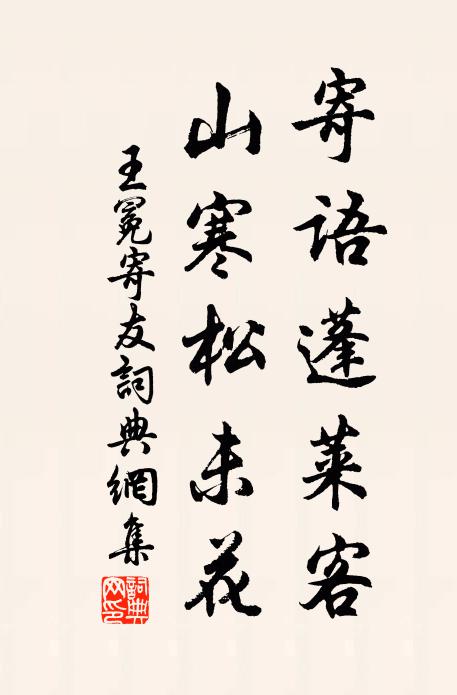 寄語蓬萊客
山寒松未花
王冕寄友詞典網集
詞典
网印